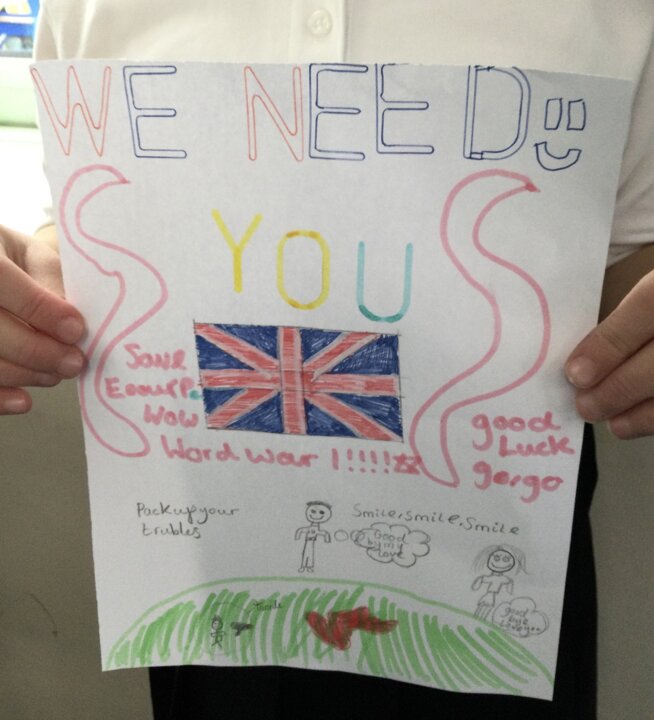 WE NEED
YOU
Save
Now
Word War 1!!!!
good
Luck
gorgo
Pack up your
trubles
Smile, Smile, Smile
Good
by my
love
good
bye
Love you